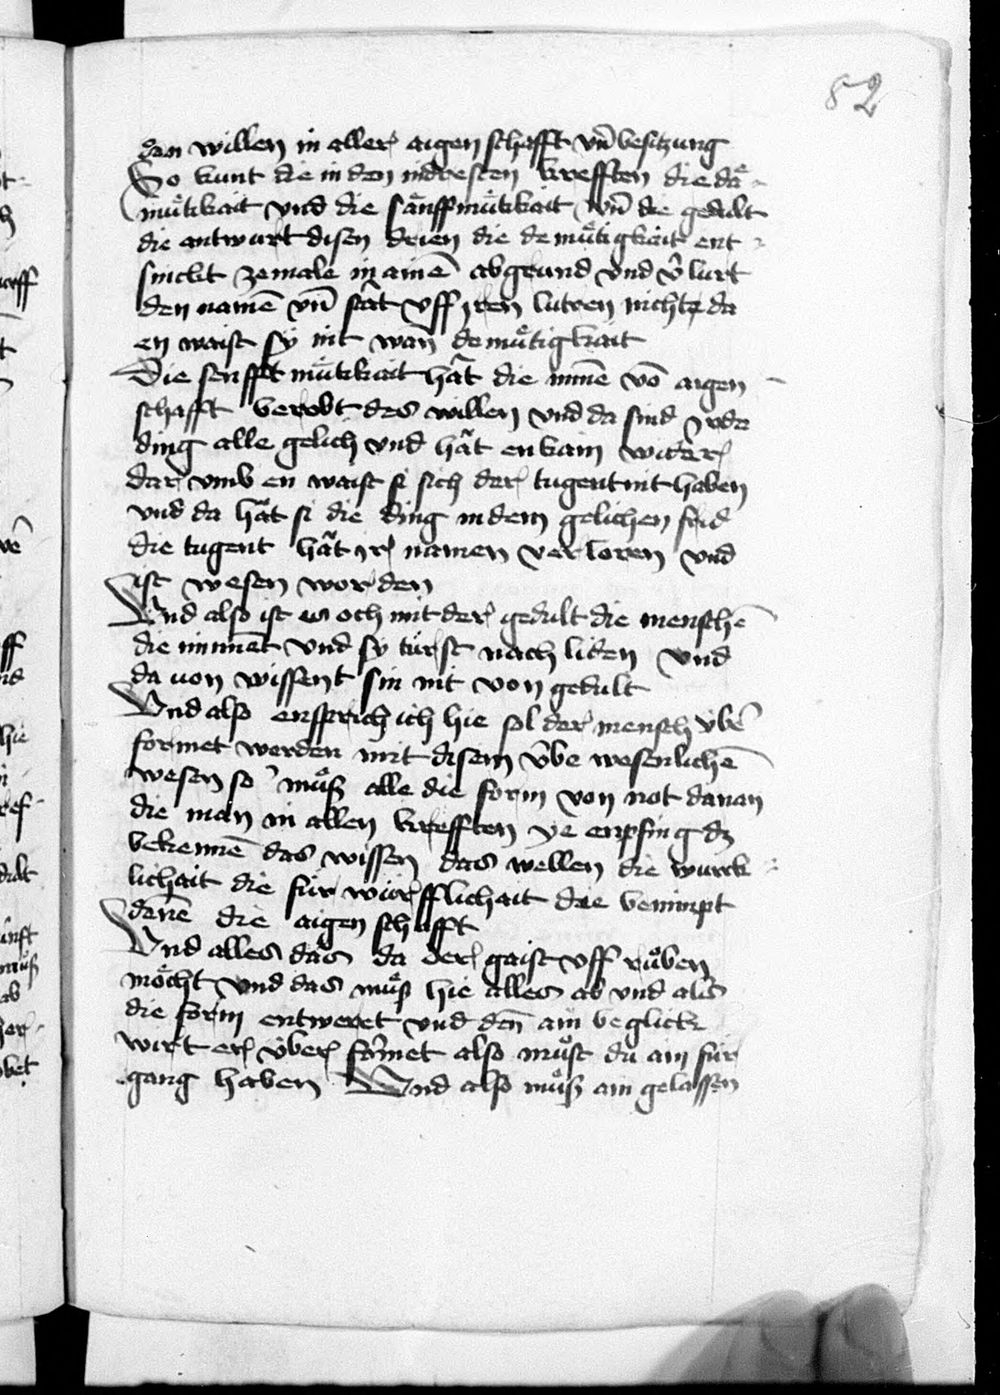 82
gen willen in aller aigen schafft vn̄ besitzung
So kunt die in den indresten krefften die dä
muͤtikait vnd die sänffmuͤtikait vn̄ die gedult
die antwurt disen drien die de muͤtigkait ent
sinckt zemale in ainē abgrund vnd v̉lurt
den namē vn̄ stät vff iren lutren nichte da
en waist sy nit wan̄ de muͤtigkait
Die senfft muͤtikait hät die mine vō aigen
schafft berobt des willen vnd da sind
ding alle gelich vnd hät enkain wider
dar vmb en waist si sich der tugent nit haben
vnd da hät si die ding in dem gelichen sind
die tugent hät ir namen verloren vnd
ist wesen worden
Vnd also ist es och mit der gedult die menschē
die minnet vnd sy türst nach liden vnd
da von wissent sin nit von gedult
Vnd also ensprich ich hie sol der mensch v̉be
formet werden mit disem v̉be wesenlichē
wesen so muͦß alle die form von not danan
die man in allen krefften ye enpfing dz
bekennē das wissen das wellen die wurck
lichait die für würfflichait die benimpt
denē die aigen schafft
Vnd alles das da der gaist vff ruͦben
möcht vnd das muͦß hie alles ab vnd als
die form entweret vnd den̄ ain beglick
wirt er v̉ber formet also muͦst du ain für
gang haben Vnd also muͦß ain gelassen